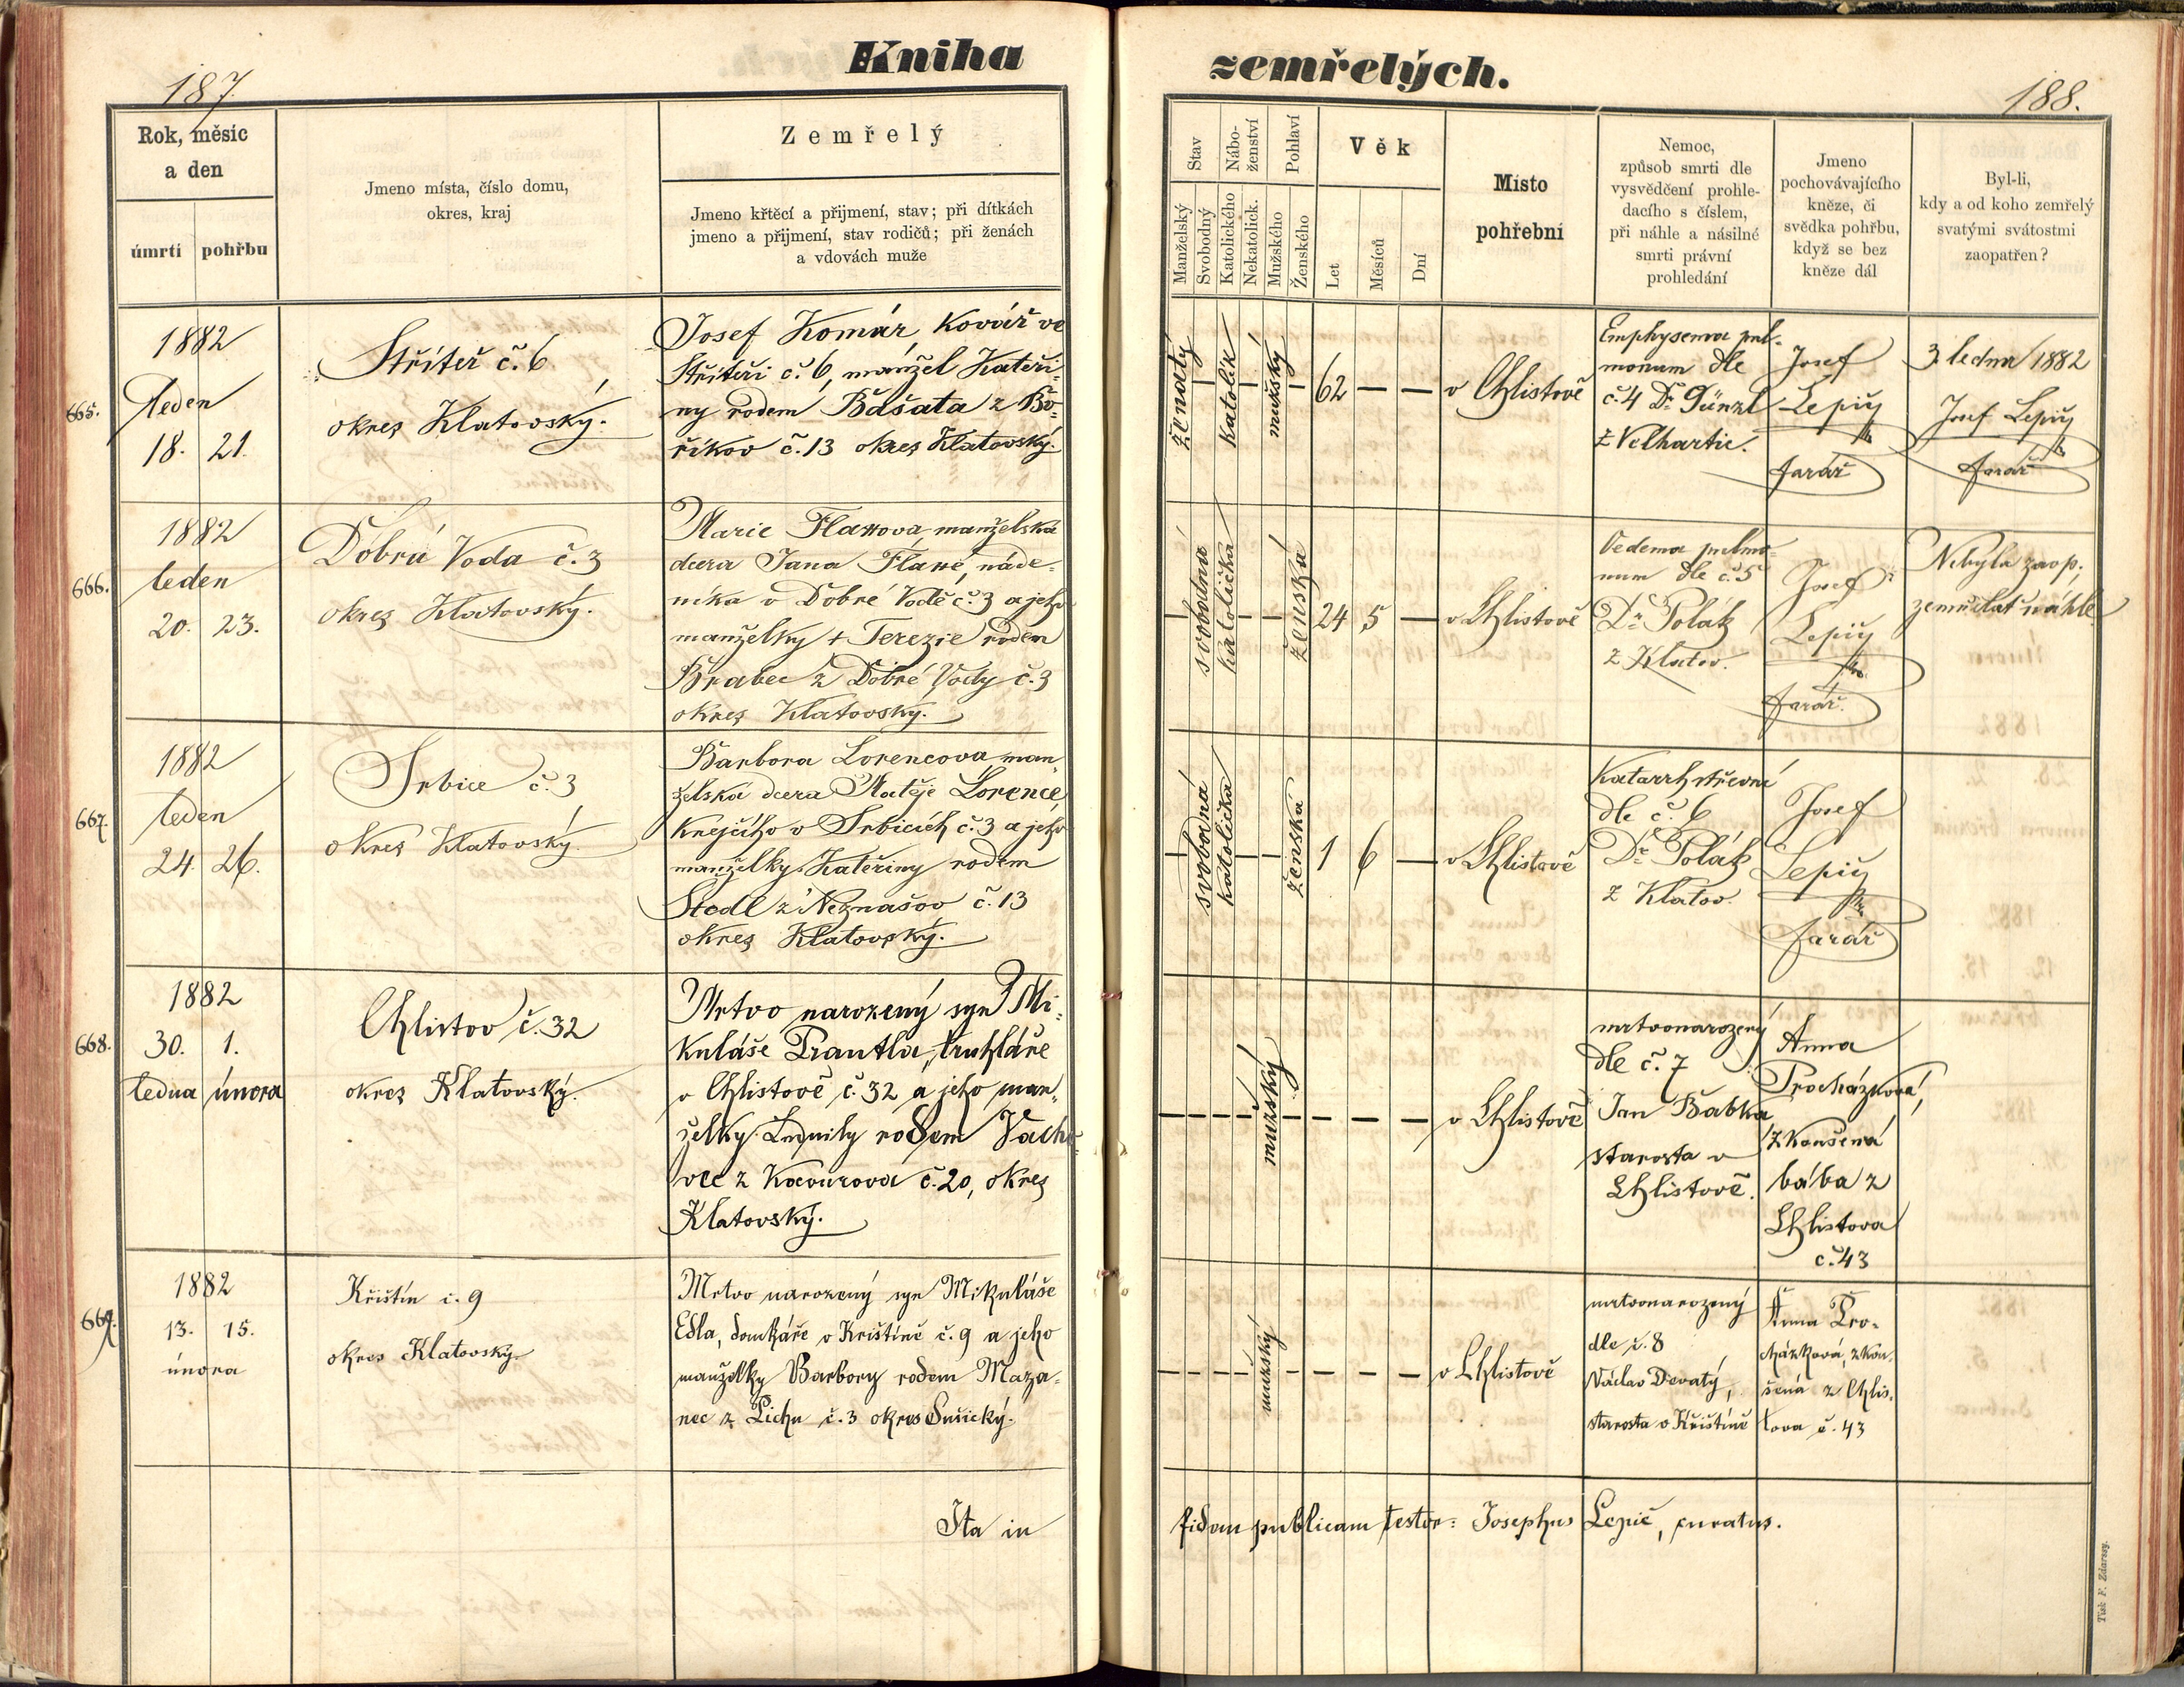 Kniha
zemřelých.
187.
188.
Rok, měsíc
a den
úmrtí
pohřbu
Jmeno místa, číslo domu,
okres, kraj
Zemřelý
Jmeno křtěcí a přijmení, stav; při dítkách
jmeno a přijmení, stav rodičů; při ženách
a vdovách muže
Stav
Manželský
Svobodný
Nábo-
ženství
Katolického
Nekatolick.
Pohlaví
Mužského
Ženského
Věk
Let
Měsíců
Dní
Místo
pohřební
Nemoc,
způsob smrti dle
vysvědčení prohle-
dacího s číslem,
při náhle a násilné
smrti právní
prohledání
Jmeno
pochovávajícího
kněze, či
svědka pohřbu,
když se bez
kněze dál
Byl-li,
kdy a od koho zemřelý
svatými svátostmi
zaopatřen?
665.
1882
leden
18. 21.
Střítež č. 6
okres Klatovský.
Josef Komár, kovář ve
Stříteži č. 6, manžel Kateři-
ny rodem Bašata z Bo-
říkov č. 13 okres Klatovský.
ženatý
katolík
mužský
62 — —
v Chlistově
Emphysema pul-
monum dle
č. 4 Dr. Günzl
z Velhartic.
Josef
Lepič
farář
3. ledna 1882
Josef Lepič
farář
666.
1882
leden
20. 23.
Dobrá Voda č. 3
okres Klatovský.
Marie Flaxova, manželská
dcera Jana Flaxe, náde-
níka v Dobré Vodě č. 3 a jeho
manželky + Terezie rodem
Brabec z Dobré Vody č. 3
okres Klatovský.
svobodná
katolička
ženská
24 5 —
v Chlistově
Oedema pulmo-
num dle č. 5
Dr. Polák
z Klatov.
Josef
Lepič
farář.
Nebyla zaop.,
zemřelať náhle
667.
1882
leden
24. 26.
Srbice č. 3
okres Klatovský.
Barbora Lorencova, man-
želská dcera Matěje Lorence,
krejčího v Srbicích č. 3 a jeho
manželky Kateřiny rodem
Stedl z Neznašov č. 13
okres Klatovský.
svobodná
katolička
ženská
1 6 —
v Chlistově
Katarrh střevní
dle č. 6
Dr. Polák
z Klatov.
Josef
Lepič
farář
668.
1882
30. 1.
ledna února
Chlistov č. 32
okres Klatovský.
Mrtvo narozený syn Mi-
kuláše Prantla, truhláře
v Chlistově č. 32 a jeho man-
želky Ludmily rodem Vacho-
vec z Kavourova č. 20, okres
Klatovský.
mužský
v Chlistově
mrtvonarozený
dle č. 7
Jan Babka
starosta v
Chlistově.
Anna
Procházková,
zkoušená
bába z
Chlistova
č. 43
669.
1882
13. 15.
února
Křištín č. 9
okres Klatovský.
Mrtvo narozený syn Mikuláše
Edla, domkáře v Křištíně č. 9 a jeho
manželky Barbory rodem Maza-
nec z Lichu č. 3 okres Sušický.
mužský
v Chlistově
mrtvonarozený
dle č. 8
Václav Devatý,
starosta v Křištíně
Anna Pro-
cházková, zkou-
šená z Chlis-
tova č. 43
Ita in
fidem publicam testor: Josephus Lepič, curatus.
Tisk F. Zdarssy.